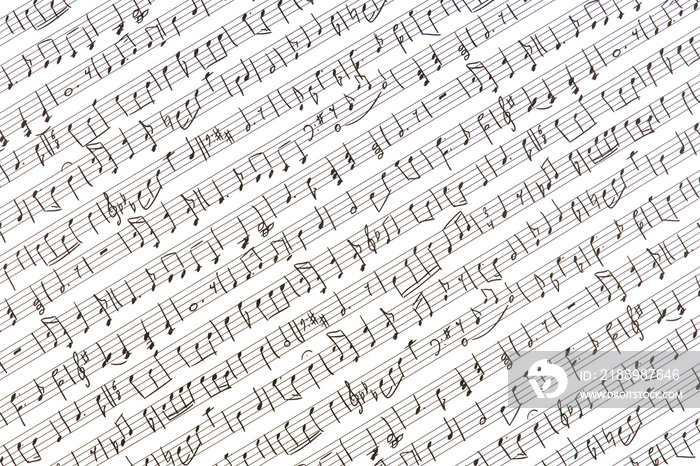 iD 2186987646
WWW.DROITSTOCK.COM